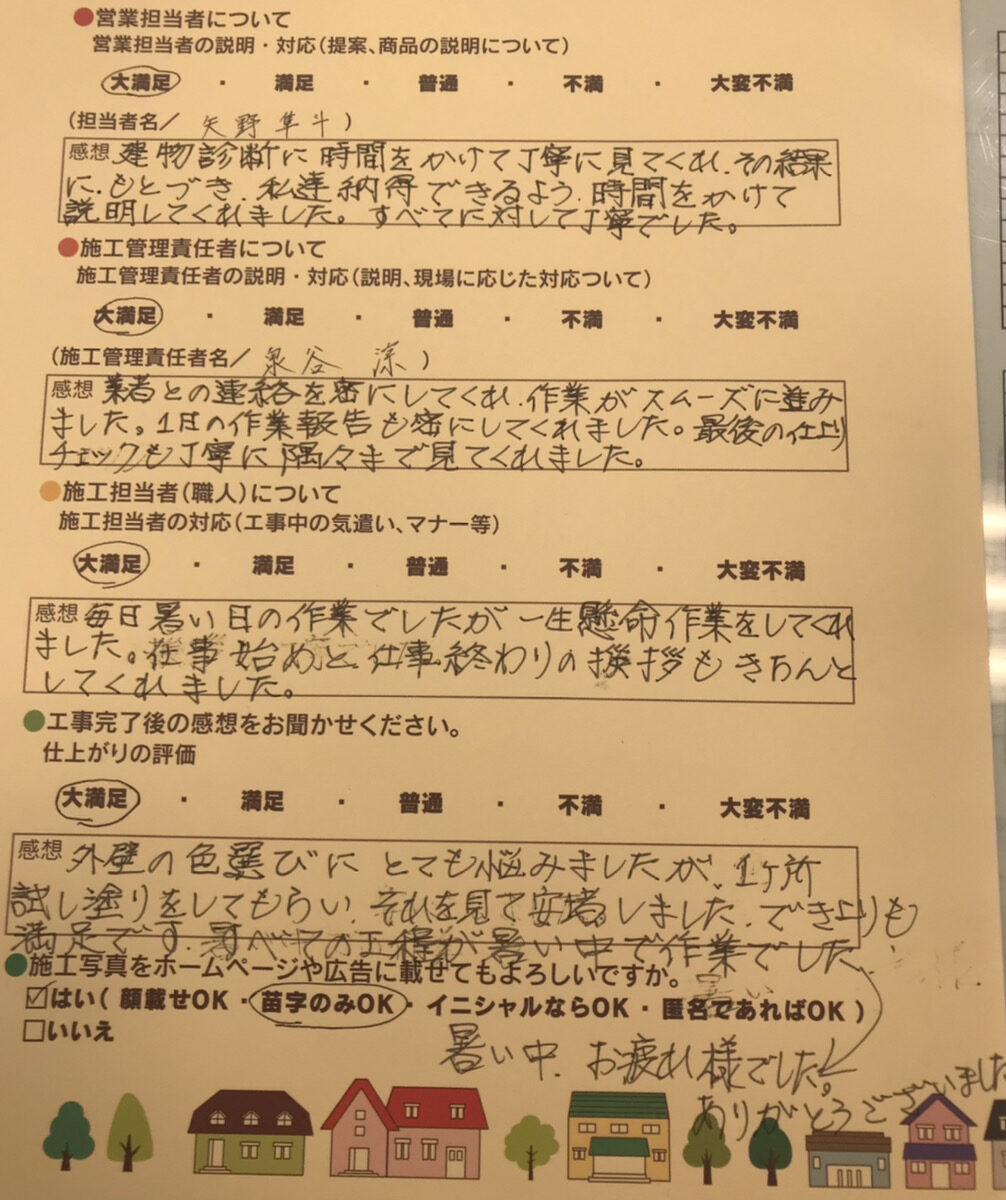 ●営業担当者について
営業担当者の説明・対応(提案、商品の説明について)
大満足 ・ 満足 ・ 普通 ・ 不満 ・ 大変不満
(担当者名/ 矢野 隼斗 )
感想 建物診断に時間をかけて丁寧に見てくれ、その結果
に、もとづき、私達納得できるよう、時間をかけて
説明してくれました。すべてに対して丁寧でした。
●施工管理責任者について
施工管理責任者の説明・対応(説明、現場に応じた対応ついて)
大満足 ・ 満足 ・ 普通 ・ 不満 ・ 大変不満
(施工管理責任者名/ 泉谷 涼 )
感想 業者との連絡を密にしてくれ、作業がスムーズに進み
ました。1日の作業報告も密にしてくれました。最後の仕上り
チェックも丁寧に隅々まで見てくれました。
●施工担当者(職人)について
施工担当者の対応(工事中の気遣い、マナー等)
大満足 ・ 満足 ・ 普通 ・ 不満 ・ 大変不満
感想 毎日暑い日の作業でしたが一生懸命作業をしてくれ
ました。仕事始めと仕事終わりの挨拶もきちんと
してくれました。
●工事完了後の感想をお聞かせください。
仕上がりの評価
大満足 ・ 満足 ・ 普通 ・ 不満 ・ 大変不満
感想 外壁の色選びにとても悩みましたが、1ヶ所
試し塗りをしてもらい、それを見て安堵しました。でき上りも
満足です。すべての工程が暑い中で作業でした、
●施工写真をホームページや広告に載せてもよろしいですか。
☑はい( 顔載せOK・苗字のみOK・イニシャルならOK・匿名であればOK )
□いいえ
暑い中、お疲れ様でした。
ありがとうございました